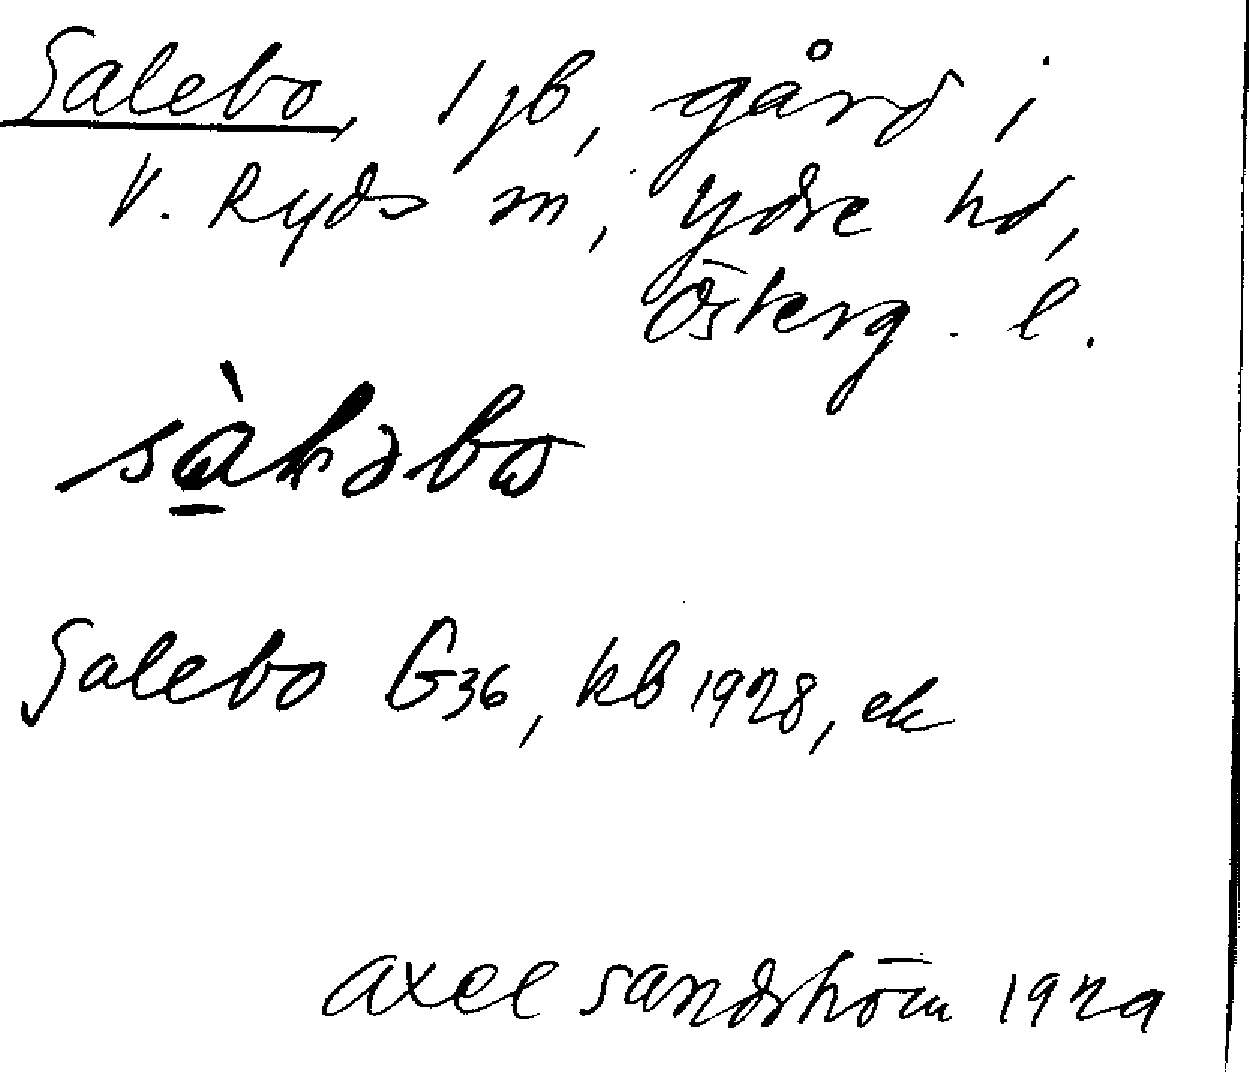 Salebo, 1 jb, gård i
V. Ryds sn, Ydre hd,
Österg. l.
Salebo G36, kb 1928, ek
Axel Sandström 1929